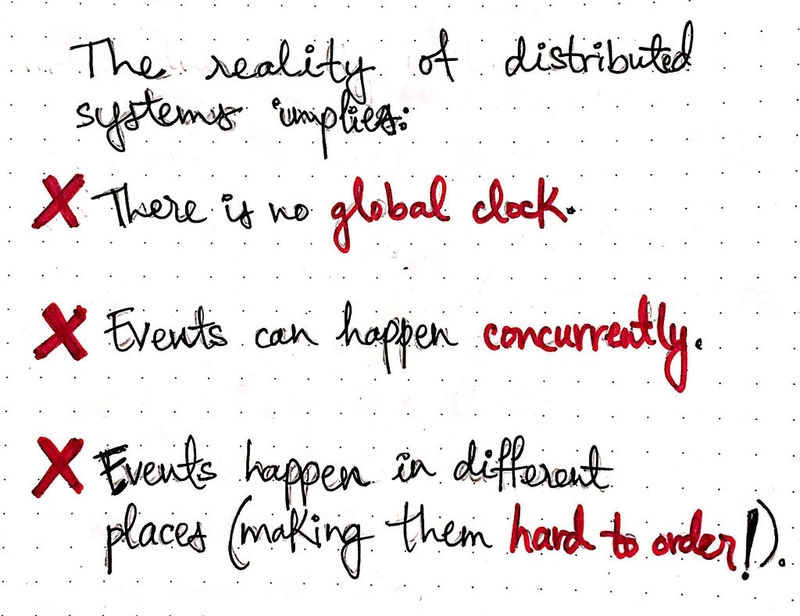 The reality of distributed
systems implies:
X There is no global clock.
X Events can happen concurrently.
X Events happen in different
places (making them hard to order!).